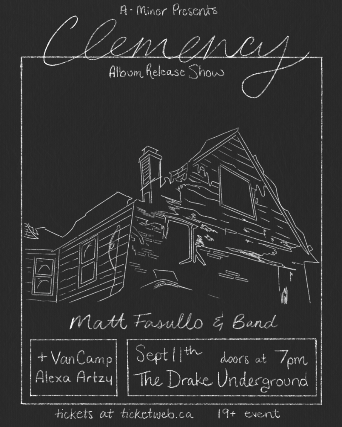 A-Minor Presents
Clemency
Album Release Show
Matt Fasullo & Band
+ VanCamp
Alexa Artzy
Sept 11th doors at 7pm
The Drake Underground
tickets at ticketweb.ca 19+ event